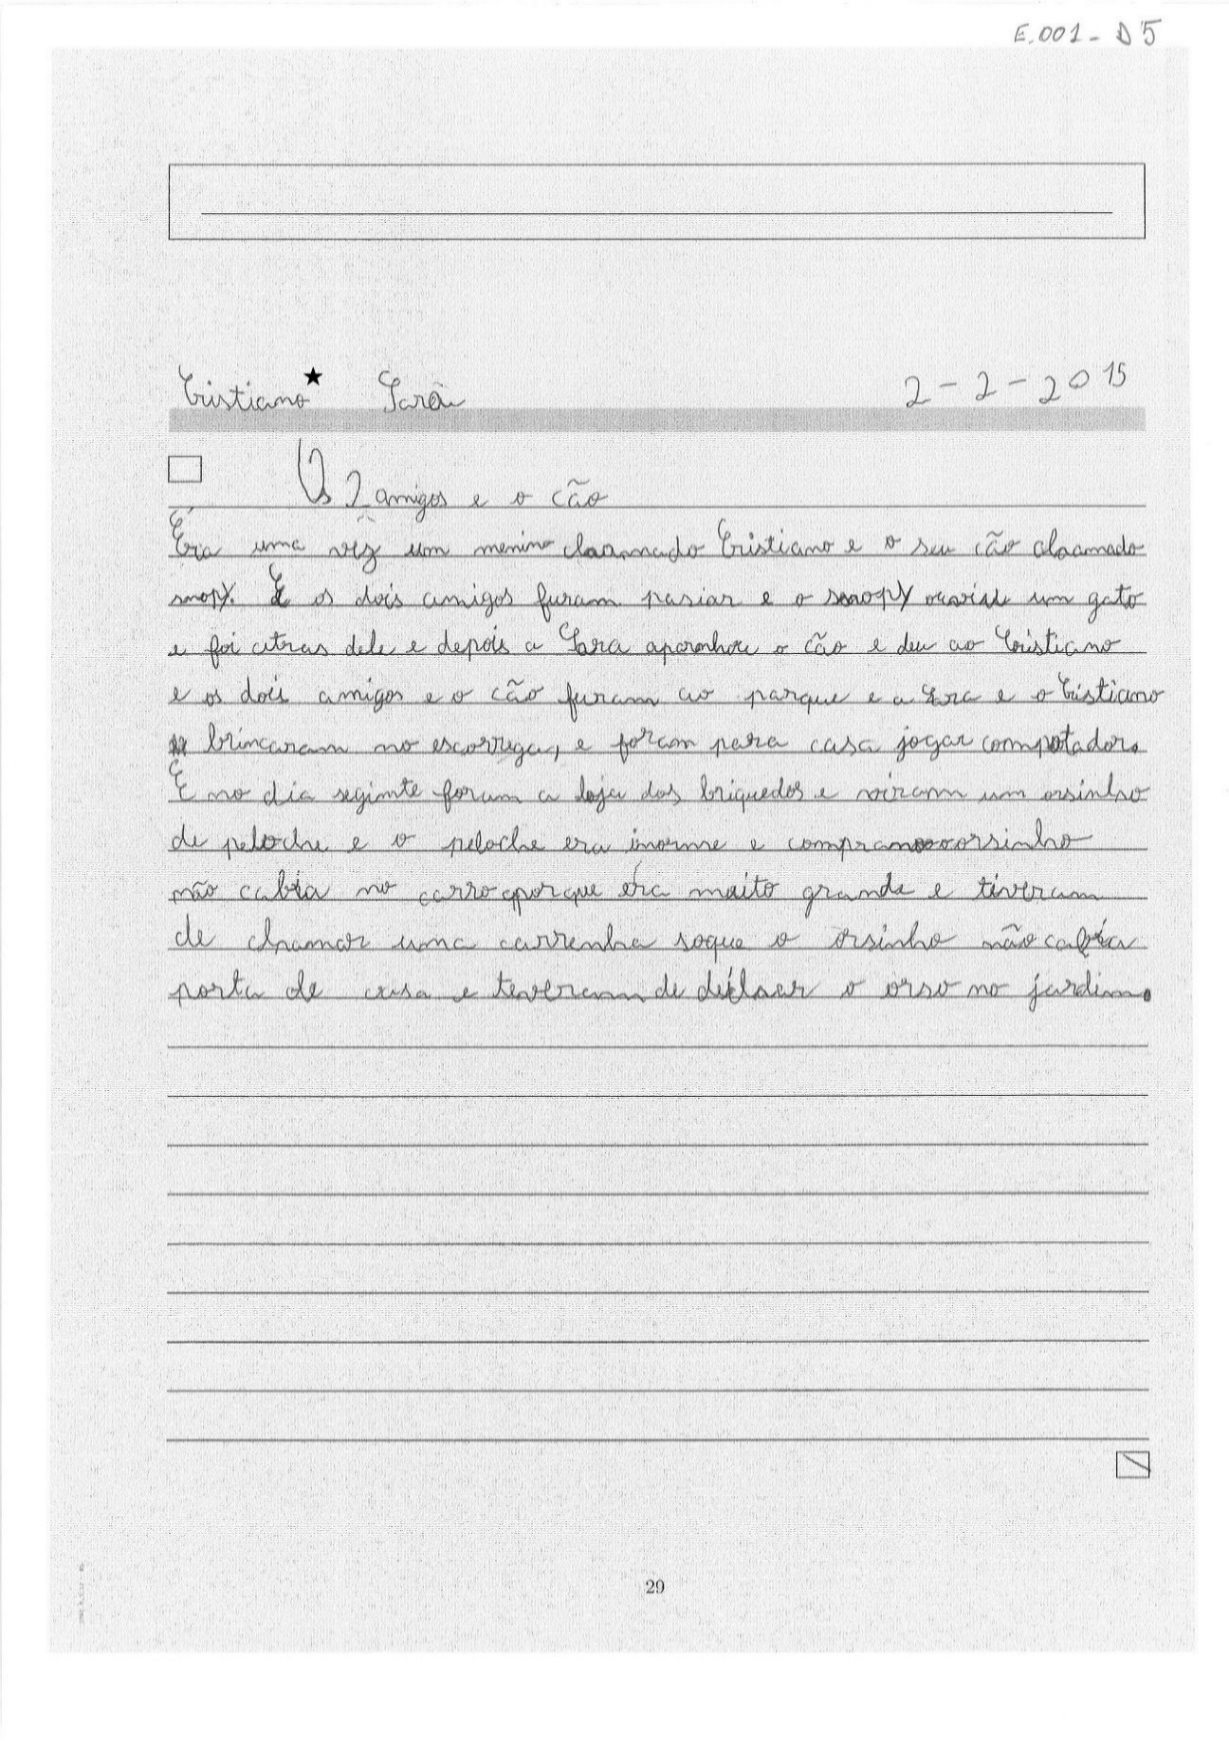 E.001 - D5
Cristiano ★ Sara 2-2-2015
Os 2 amigos e o cão
Era uma vez um menino chamado Cristiano e o seu cão chamado
snopy. E os dois amigos furam pasiar e o snopy ouviu um gato
e foi atras dele e depois a Sara apanhou o cão e deu ao Cristiano
e os dois amigos e o cão furam ao parque e a Sara e o Cristiano
brincaram no escorrega, e foram para casa jogar computador.
E no dia segimte foram a loja dos briquedos e viram um orsinho
de peloche e o peloche era inorme e compram orsinho
não cabia no carro porque era muito grande e tiveram
de chamar uma carrenha soque o orsinho não cabia
porta de casa e teveram de deichar o orso no jardim.
29